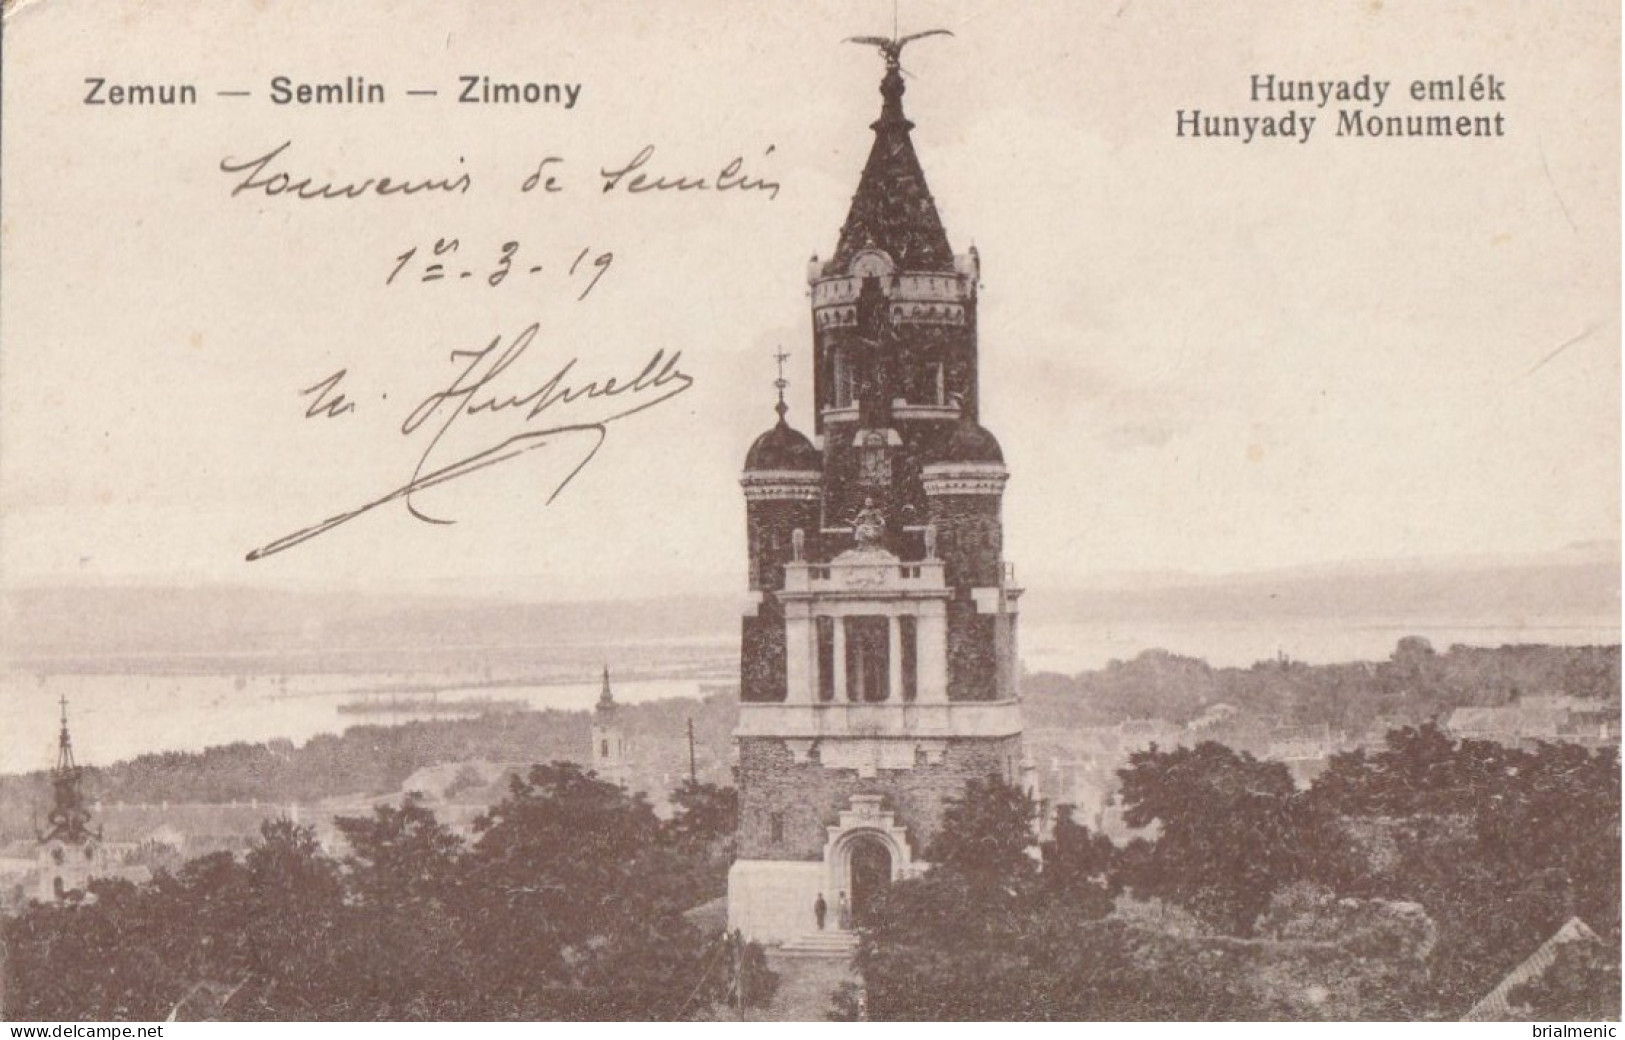 Zemun — Semlin — Zimony
Hunyady emlék
Hunyady Monument
Souvenir de Semlin
1er - 3 - 19
www.delcampe.net
brialmenic